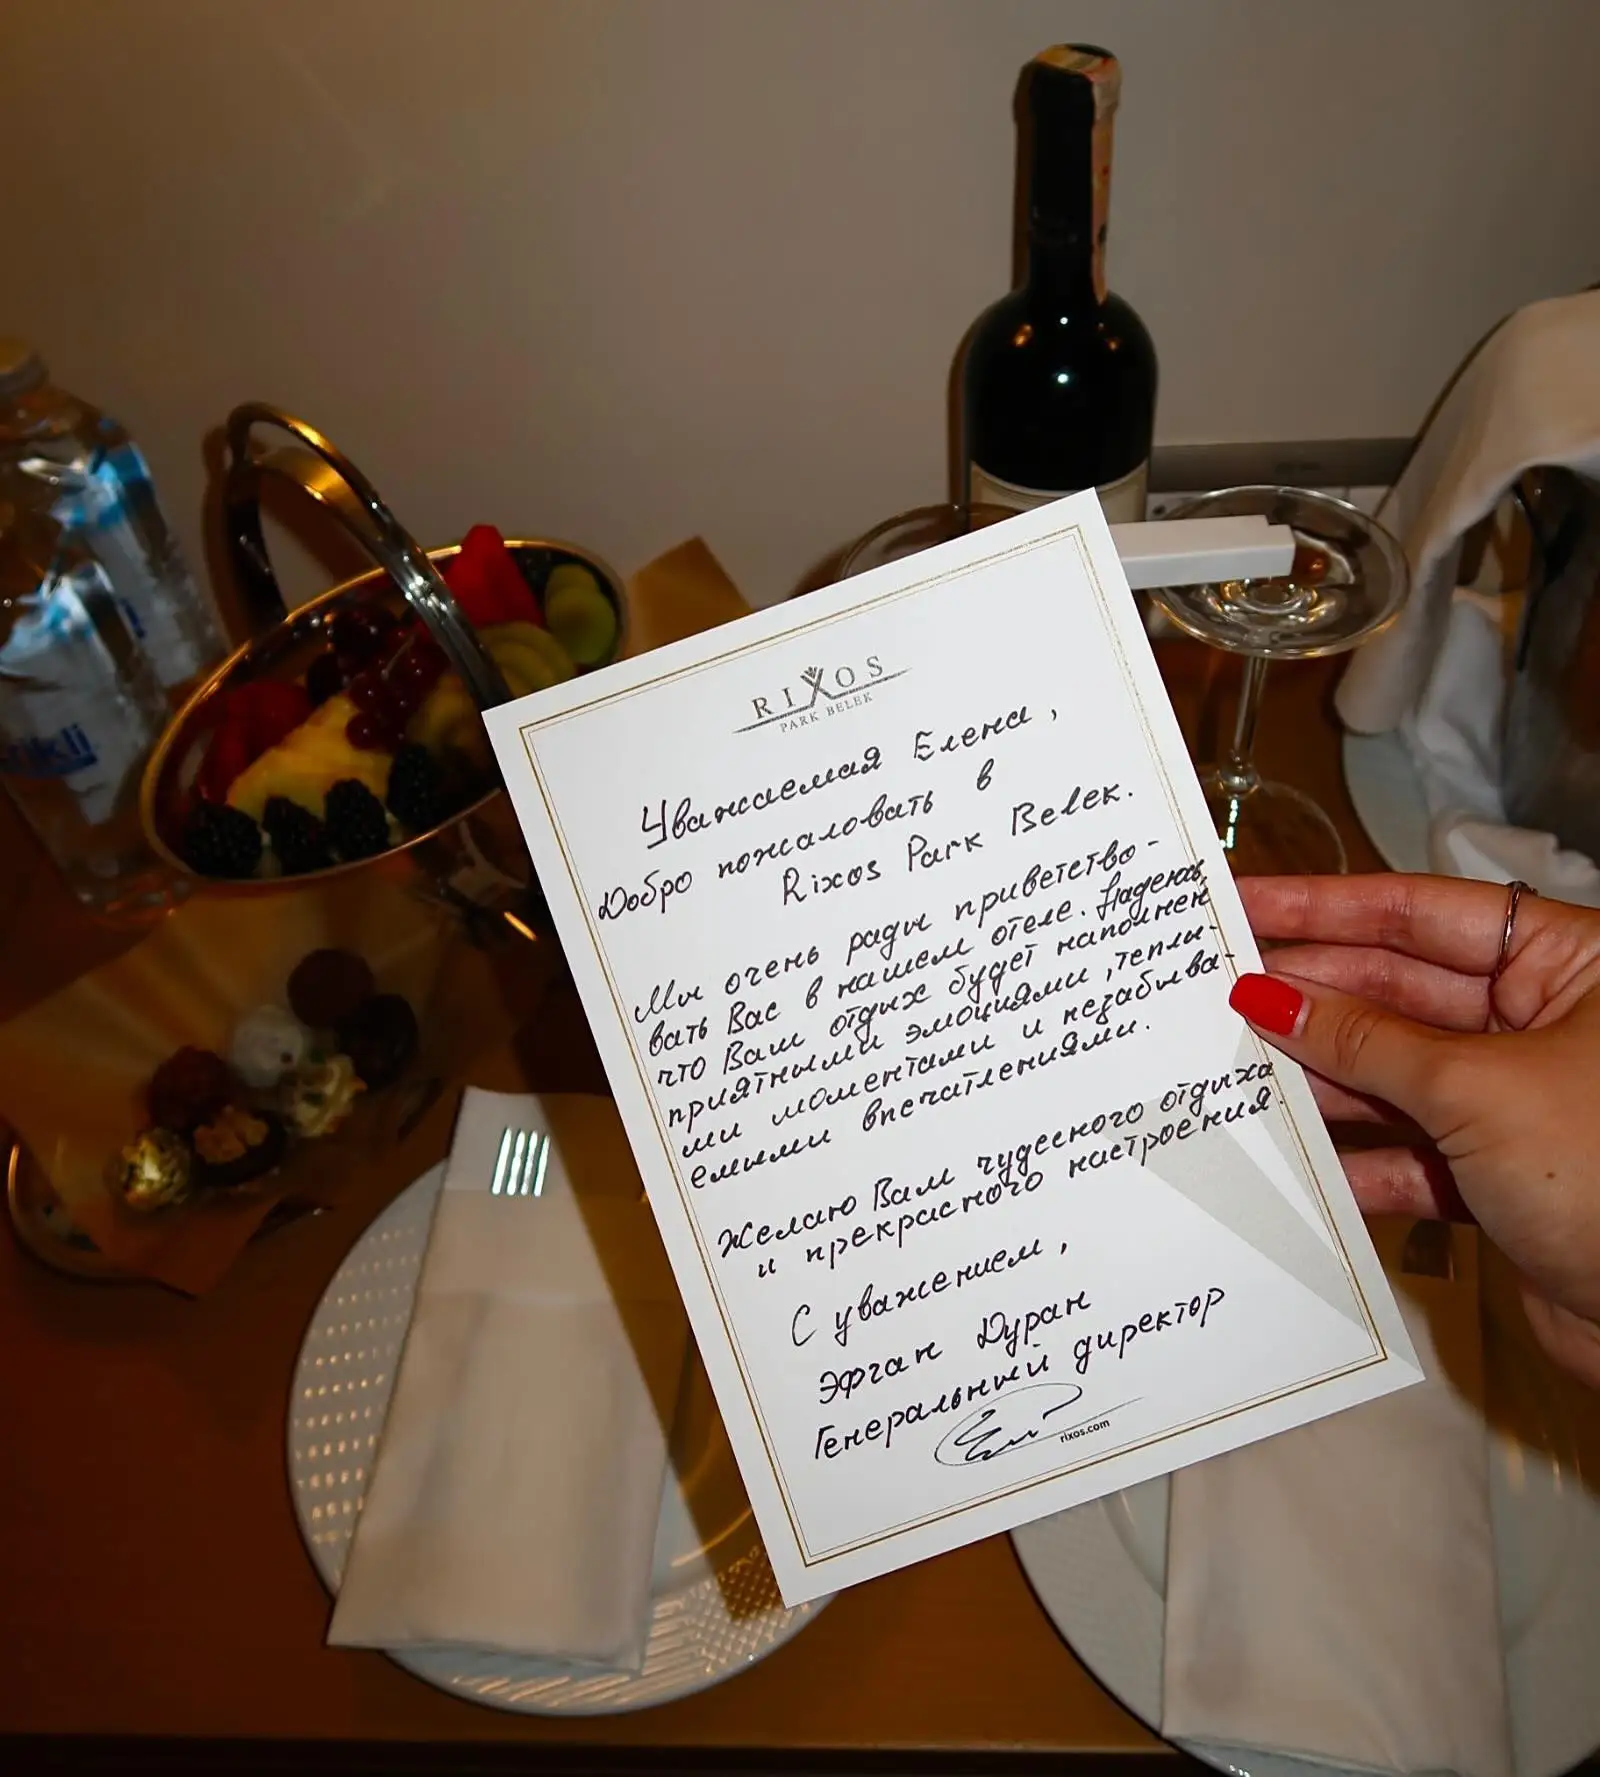 RIXOS
PARK BELEK
Уважаемая Елена,
Добро пожаловать в
Rixos Park Belek.
Мы очень рады приветство-
вать Вас в нашем отеле. Надеюсь,
что Ваш отдых будет наполнен
приятными эмоциями, теплы-
ми моментами и незабыва-
емыми впечатлениями.
Желаю Вам чудесного отдыха
и прекрасного настроения.
С уважением,
Эрган Дуран
Генеральный директор
rixos.com